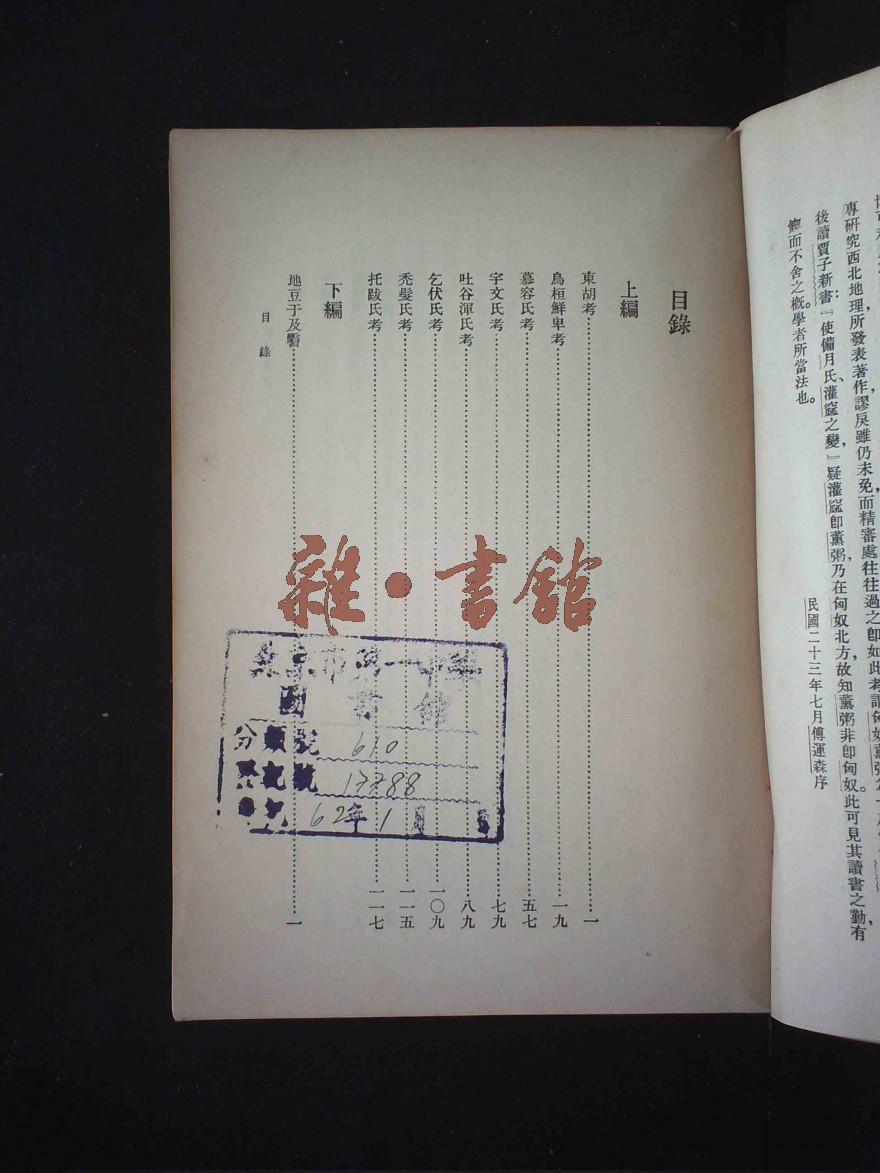 專研究西北地理所發表著作，謬戾雖仍未免，而精審處往往過之，卽如此考謂匈奴薰粥
後讀賈子新書：『使備月氏、灌窳之變，』疑灌窳卽薰粥，乃在匈奴北方，故知薰粥非卽匈奴。此可見其讀書之勤，有
鍥而不舍之概，學者所當法也。
民國二十三年七月傅運森序
目錄
上編
東胡考……一
烏桓鮮卑考……一九
慕容氏考……五七
宇文氏考……七九
吐谷渾氏考……八九
乞伏氏考……一〇九
禿髮氏考……一一五
托跋氏考……一一七
下編
地豆于及霫……一
目錄
雜·書館
市第一中學
圖書館
分類號 610
登記號 17788
62年1